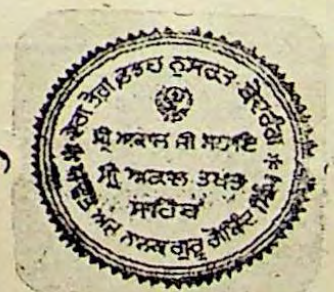 ਦੇਗ ਤੇਗ ਫ਼ਤਹ ਨੁਸਰਤ ਬੇਦਰੰਗ
ਯਾਫ਼ਤ ਅਜ਼ ਨਾਨਕ ਗੁਰੂ ਗੋਬਿੰਦ ਸਿੰਘ
ਸ੍ਰੀ ਅਕਾਲ ਜੀ ਸਹਾਇ
ਸ੍ਰੀ ਅਕਾਲ ਤਖਤ
ਸਾਹਿਬ